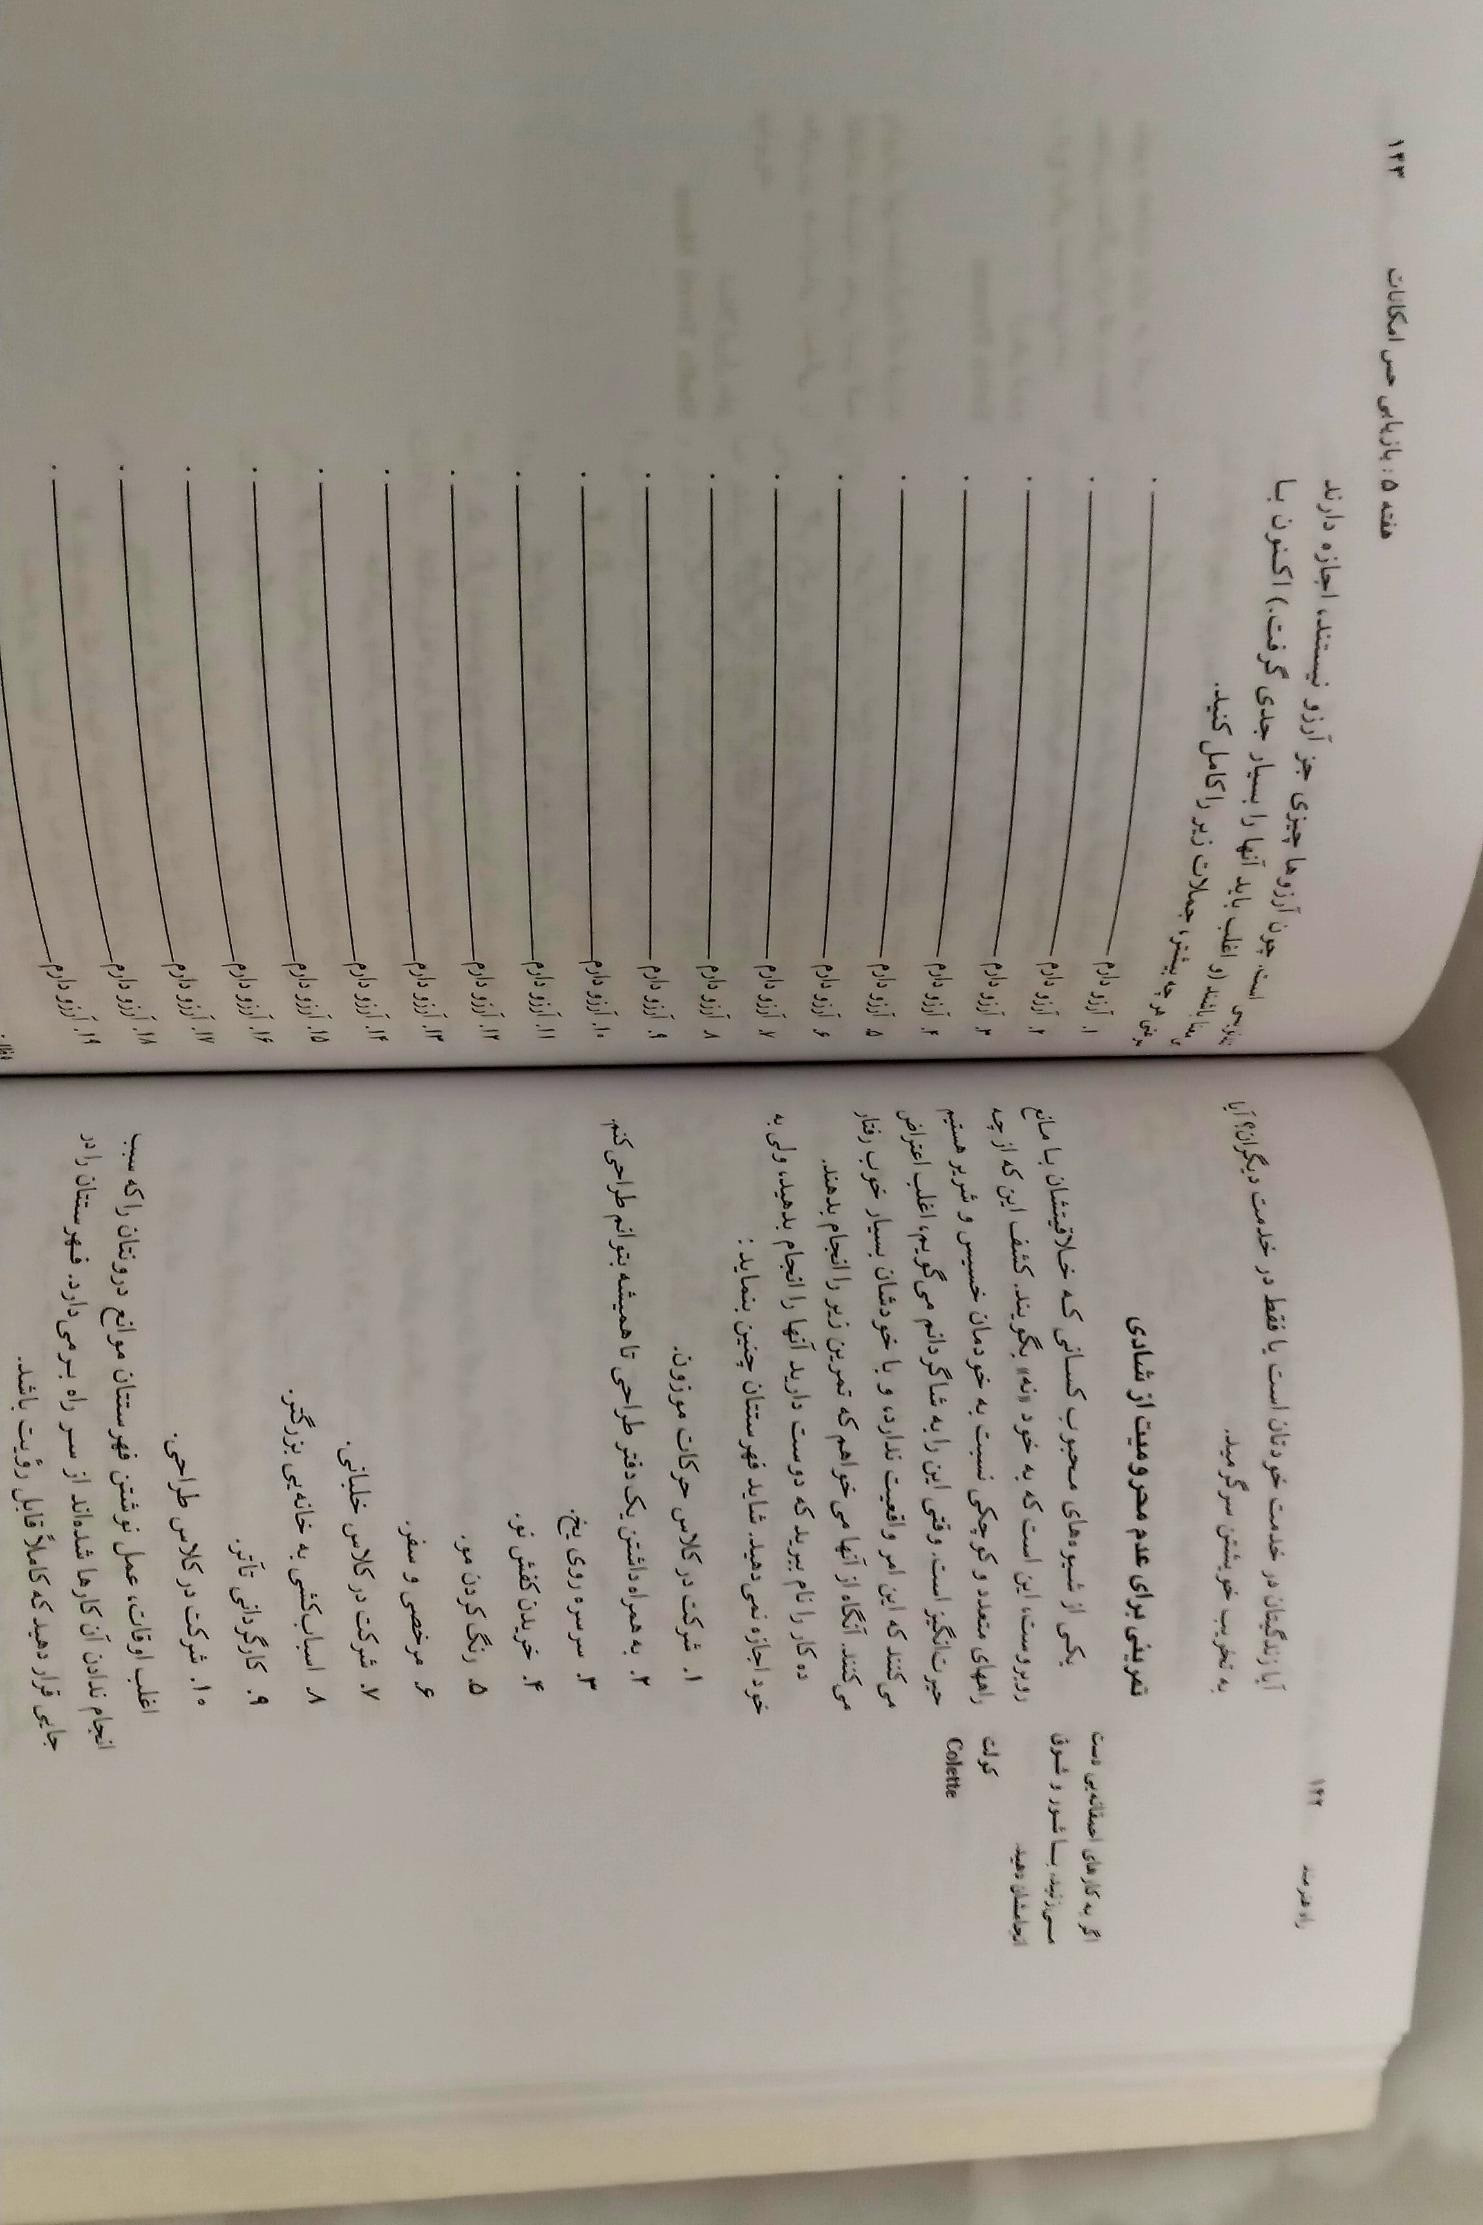 ۱۴۲
راه هنرمند
آیا زندگیتان در خدمت خودتان است یا فقط در خدمت دیگران؟ آیا
به تخریب خویشتن سرگرمید.
تمرینی برای عدم محرومیت از شادی
یکی از شیوه‌های محبوب کسانی که خلاقیتشان با مانع
روبروست، این است که به خود «نه» بگویند. کشف این که از چه
راههای متعدد و کوچکی نسبت به خودمان خسیس و شریر هستیم
حیرت‌انگیز است. وقتی این را به شاگردانم می‌گویم، اغلب اعتراض
می‌کنند که این امر واقعیت ندارد، و با خودشان بسیار خوب رفتار
می‌کنند. آنگاه از آنها می‌خواهم که تمرین زیر را انجام بدهند.
ده کار را نام ببرید که دوست دارید آنها را انجام بدهید، ولی به
خود اجازه نمی‌دهید. شاید فهرستتان چنین بنماید:
۱. شرکت در کلاس حرکات موزون.
۲. به همراه داشتن یک دفتر طراحی تا همیشه بتوانم طراحی کنم.
۳. سرسره روی یخ.
۴. خریدن کفش نو.
۵. رنگ کردن مو.
۶. مرخصی و سفر.
۷. شرکت در کلاس خلبانی.
۸. اسباب‌کشی به خانه‌یی بزرگتر.
۹. کارگردانی تآتر.
۱۰. شرکت در کلاس طراحی.
اغلب اوقات، عمل نوشتن فهرستتان موانع درونتان را که سبب
انجام ندادن آن کارها شده‌اند از سر راه برمی‌دارد. فهرستتان را در
جایی قرار دهید که کاملاً قابل رؤیت باشد.
اگر به کارهای احمقانه‌یی دست
می‌زنید، با شور و شوق
انجامشان دهید.
کولت
Colette
هفته ۵: بازیابی حس امکانات
۱۴۳
است. چون آرزوها چیزی جز آرزو نیستند، اجازه دارند
باشند (و اغلب باید آنها را بسیار جدی گرفت.) اکنون با
هر چه بیشتر، جملات زیر را کامل کنید.
۱. آرزو دارم
۲. آرزو دارم
۳. آرزو دارم
۴. آرزو دارم
۵. آرزو دارم
۶. آرزو دارم
۷. آرزو دارم
۸. آرزو دارم
۹. آرزو دارم
۱۰. آرزو دارم
۱۱. آرزو دارم
۱۲. آرزو دارم
۱۳. آرزو دارم
۱۴. آرزو دارم
۱۵. آرزو دارم
۱۶. آرزو دارم
۱۷. آرزو دارم
۱۸. آرزو دارم
۱۹. آرزو دارم